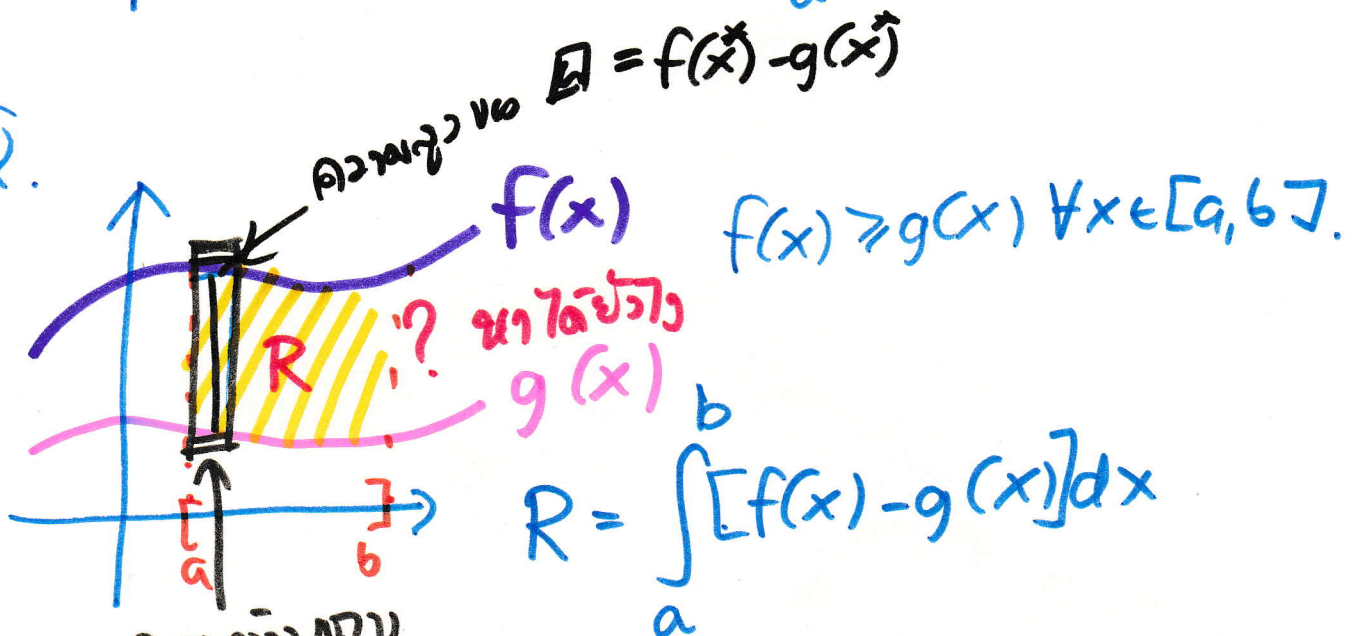 ความยาวของ = f(x*) - g(x*)
2.
f(x)
f(x) ≥ g(x) ∀x ∈ [a, b].
R
? หาได้ยังไง
g(x)
[ ]
a b
R = ∫ₐᵇ [f(x) - g(x)] dx